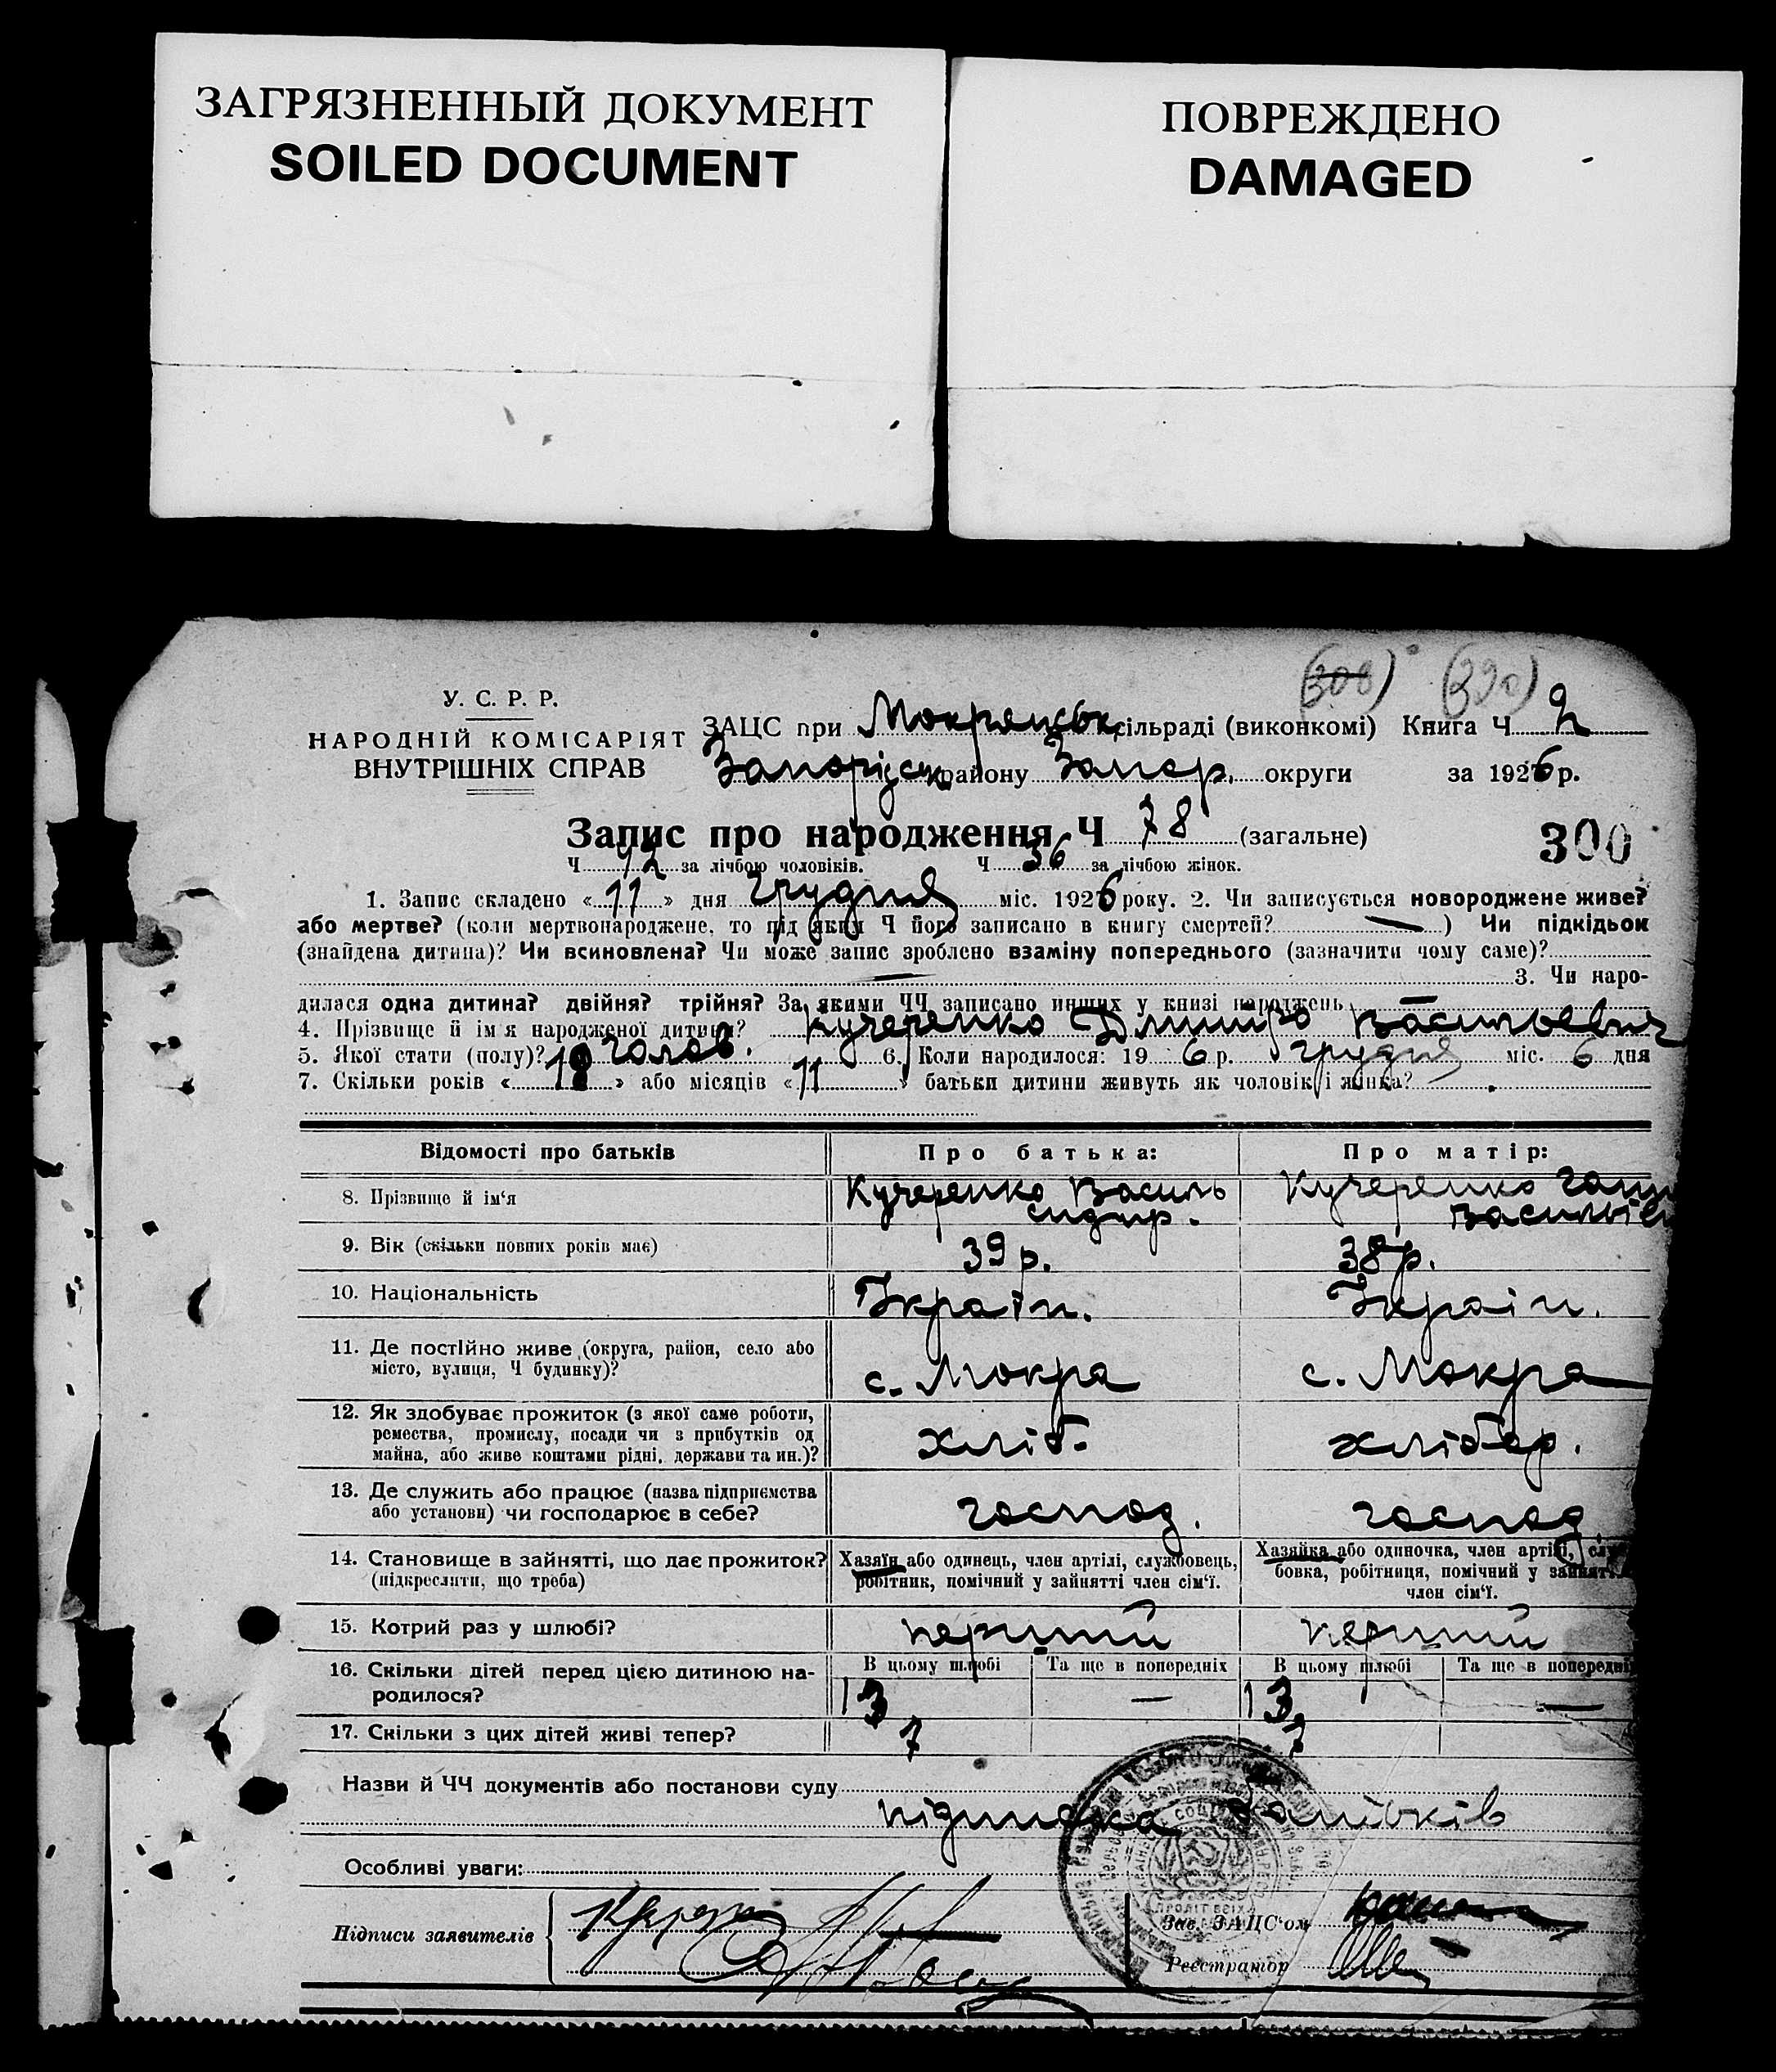 ЗАГРЯЗНЕННЫЙ ДОКУМЕНТ
SOILED DOCUMENT
ПОВРЕЖДЕНО
DAMAGED
(308) (390)
У. С. Р. Р.
НАРОДНІЙ КОМІСАРІЯТ
ВНУТРІШНІХ СПРАВ
ЗАЦС при Мокрянськ. сільраді (виконкомі) Книга Ч 2
Запорізськ району Запор. округи за 1926 р.
Запис про народження Ч 78 (загальне)
300
Ч 42 за лічбою чоловіків. Ч 36 за лічбою жінок.
1. Запис складено « 11 » дня грудня міс. 1926 року. 2. Чи записується новороджене живе?
або мертве? (коли мертвонароджене, то під яким Ч його записано в книгу смертей? — ) Чи підкідьок
(знайдена дитина)? Чи всиновлена? Чи може запис зроблено взаміну попереднього (зазначити чому саме)?
— 3. Чи наро-
дилася одна дитина? двійня? трійня? За якими ЧЧ записано инших у книзі народжень —
4. Прізвище й ім'я народженої дитини? Кучеренко Дмитро Васильевич
5. Якої стати (полу)? чолов. 6. Коли народилося: 19 6 р. грудня міс. 6 дня
7. Скільки років « 18 » або місяців « 11 » батьки дитини живуть як чоловік і жінка?
Відомості про батьків
Про батька:
Про матір:
8. Прізвище й ім'я
Кучеренко Василь
Сидир.
Кучеренко
9. Вік (скільки повних років має)
39 р.
38 р.
10. Національність
Україн.
Україн.
11. Де постійно живе (округа, район, село або
місто, вулиця, Ч будинку)?
с. Мокра
с. Мокра
12. Як здобуває прожиток (з якої саме роботи,
ремества, промислу, посади чи з прибутків од
майна, або живе коштами рідні, держави та ин.)?
хліб.
хлібор.
13. Де служить або працює (назва підприємства
або установи) чи господарює в себе?
господ.
господ.
14. Становище в зайнятті, що дає прожиток?
(підкреслити, що треба)
Хазяїн або одинець, член артілі, службовець,
робітник, помічний у зайнятті член сім'ї.
Хазяйка або одиночка, член артілі, служ
бовка, робітниця, помічний у зайнят
член сім'ї.
15. Котрий раз у шлюбі?
перший
перший
16. Скільки дітей перед цією дитиною на-
родилося?
В цьому шлюбі
Та ще в попередніх
В цьому шлюбі
Та ще в попередні
13 —
13 —
17. Скільки з цих дітей живі тепер?
7
7
Назви й ЧЧ документів або постанови суду
підписка батьків
Особливі уваги:
Підписи заявителів
Зав. ЗАЦС'ом
Реєстратор